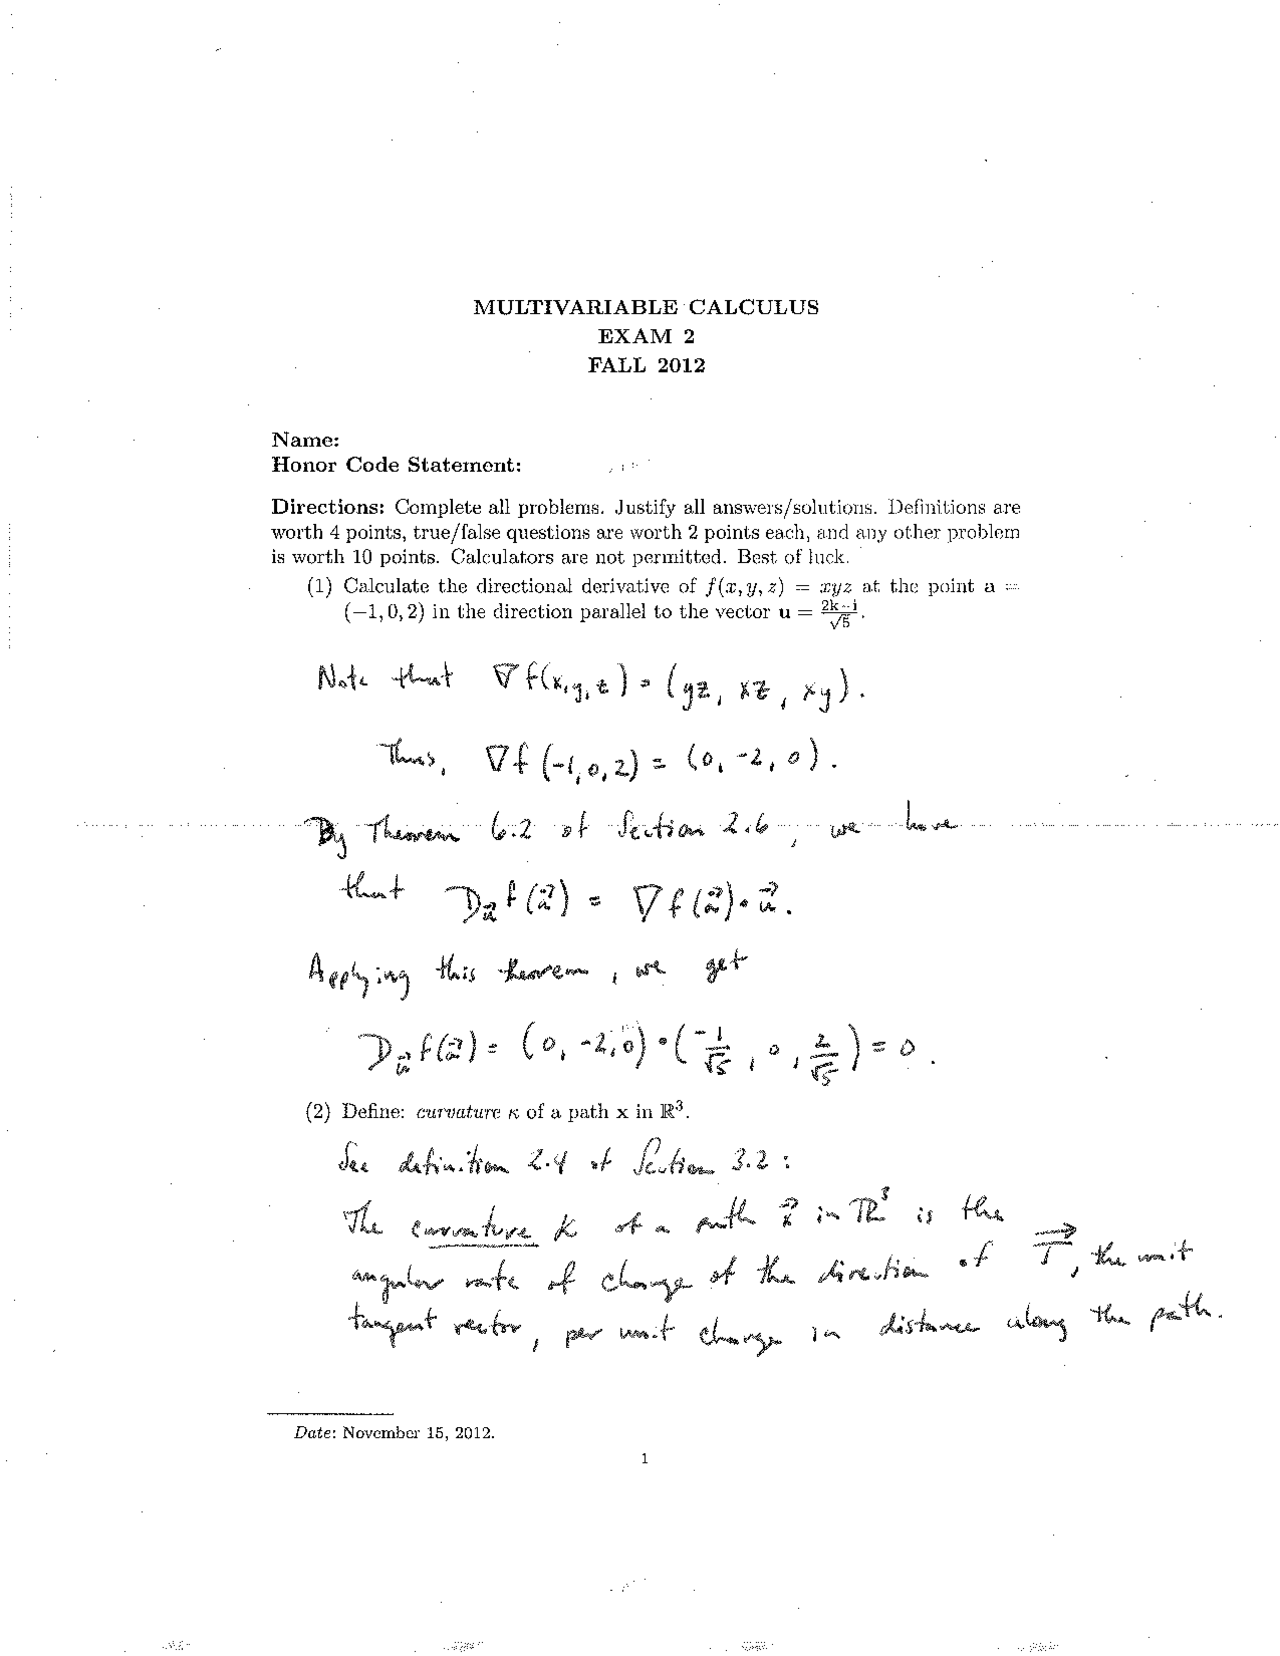 MULTIVARIABLE CALCULUS
EXAM 2
FALL 2012
Name:
Honor Code Statement:
Directions: Complete all problems. Justify all answers/solutions. Definitions are
worth 4 points, true/false questions are worth 2 points each, and any other problem
is worth 10 points. Calculators are not permitted. Best of luck.
(1) Calculate the directional derivative of f(x, y, z) = xyz at the point a =
(−1, 0, 2) in the direction parallel to the vector u = (2k−i)/√5.
Note that ∇f(x,y,z) = (yz, xz, xy).
Thus, ∇f(-1,0,2) = (0, -2, 0).
By Theorem 6.2 of Section 2.6, we have
that D_u⃗ f(a⃗) = ∇f(a⃗)·u⃗.
Applying this theorem, we get
D_u⃗ f(a⃗) = (0, -2, 0)·(-1/√5, 0, 2/√5) = 0.
(2) Define: curvature κ of a path x in ℝ³.
See definition 2.4 of Section 3.2:
The curvature κ of a path x⃗ in ℝ³ is the
angular rate of change of the direction of T⃗, the unit
tangent vector, per unit change in distance along the path.
Date: November 15, 2012.
1